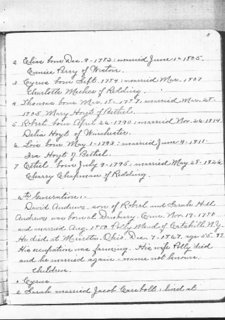 2 Eliza born Dec. 9-1783; married June 1-1805.
Eunice Perry of Wilton.
3 Cyrus born Sept. 1784; married Mar. 1807
Charlotte Meeker of Redding.
4 Thomas born Mar. 15-1787; married Mar. 25-
1805 Mary Hoyt of Bethel.
5 Robert born Apr. 26-1790; married Nov. 26-1814
Delia Hoyt of Winchester.
6 Lois born May 1-1793; married June 9-1811
Ira Hoyt of Bethel.
7 Ethel born July 9-1795; married May 27-1824
Sherry Chapman of Redding.
Generation:-
David Andrews, son of Robert and Sarah Hills
Andrews was born at Danbury Conn. Nov. 19-1770
and married Aug. 1792 Polly Wood of Catskill N.Y.
He died at Ohio, Dec. 7-1847, age
His occupation was farming. His wife Polly died
and he married again - name not known.
Children.
1 Cyrus
2 Sarah married Jacob died at